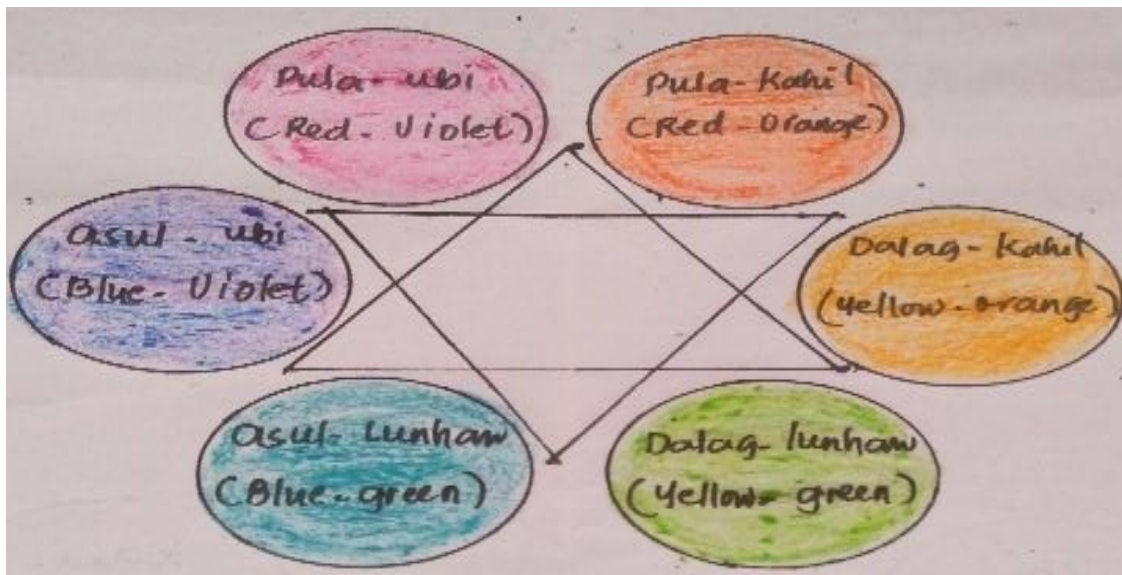 Pula-ubi
(Red-Violet)
Pula-Kahil
(Red-Orange)
asul-ubi
(Blue-Violet)
Dalag-Kahil
(yellow-orange)
asul-Lunhaw
(Blue-green)
Dalag-lunhaw
(yellow-green)